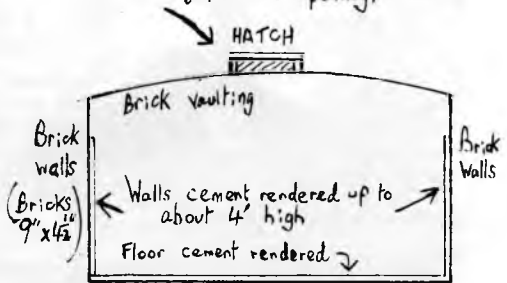 HATCH
Brick vaulting
Brick
walls
(Bricks
9" x 4½")
Brick
Walls
Walls cement rendered up to
about 4' high
Floor cement rendered